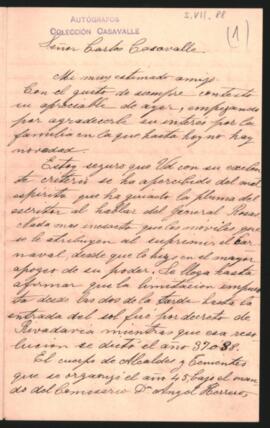 AUTÓGRAFOS
COLECCIÓN CASAVALLE
5.VII.88
(1)
Señor Carlos Casavalle.
Mi muy estimado amigo
Con el gusto de siempre contesto
su apreciable de ayer, empezando
por agradecerle su interés por la
familia en la que hasta hoy no hay
novedad.
Estoy seguro que Vd con su excelen
te criterio se ha apercibido del mal
espíritu que ha guiado la pluma del
escritor al hablar del General Rosas
Nada mas incierto que los móviles que
se le atribuyen al suprimir el Car-
naval, desde que lo hizo en el mayor
apogeo de su poder. Se llega hasta
afirmar que la limitacion impues
ta desde las dos de la tarde hasta la
entrada del sol fué por decreto de
Rivadavia mientras que esa reso-
lucion se dictó el año 37 o 38.
El cuerpo de Alcaldes y Tenientes
que se organizó el año 45, bajo el man
do del Comisario Dn Angel Herrero,